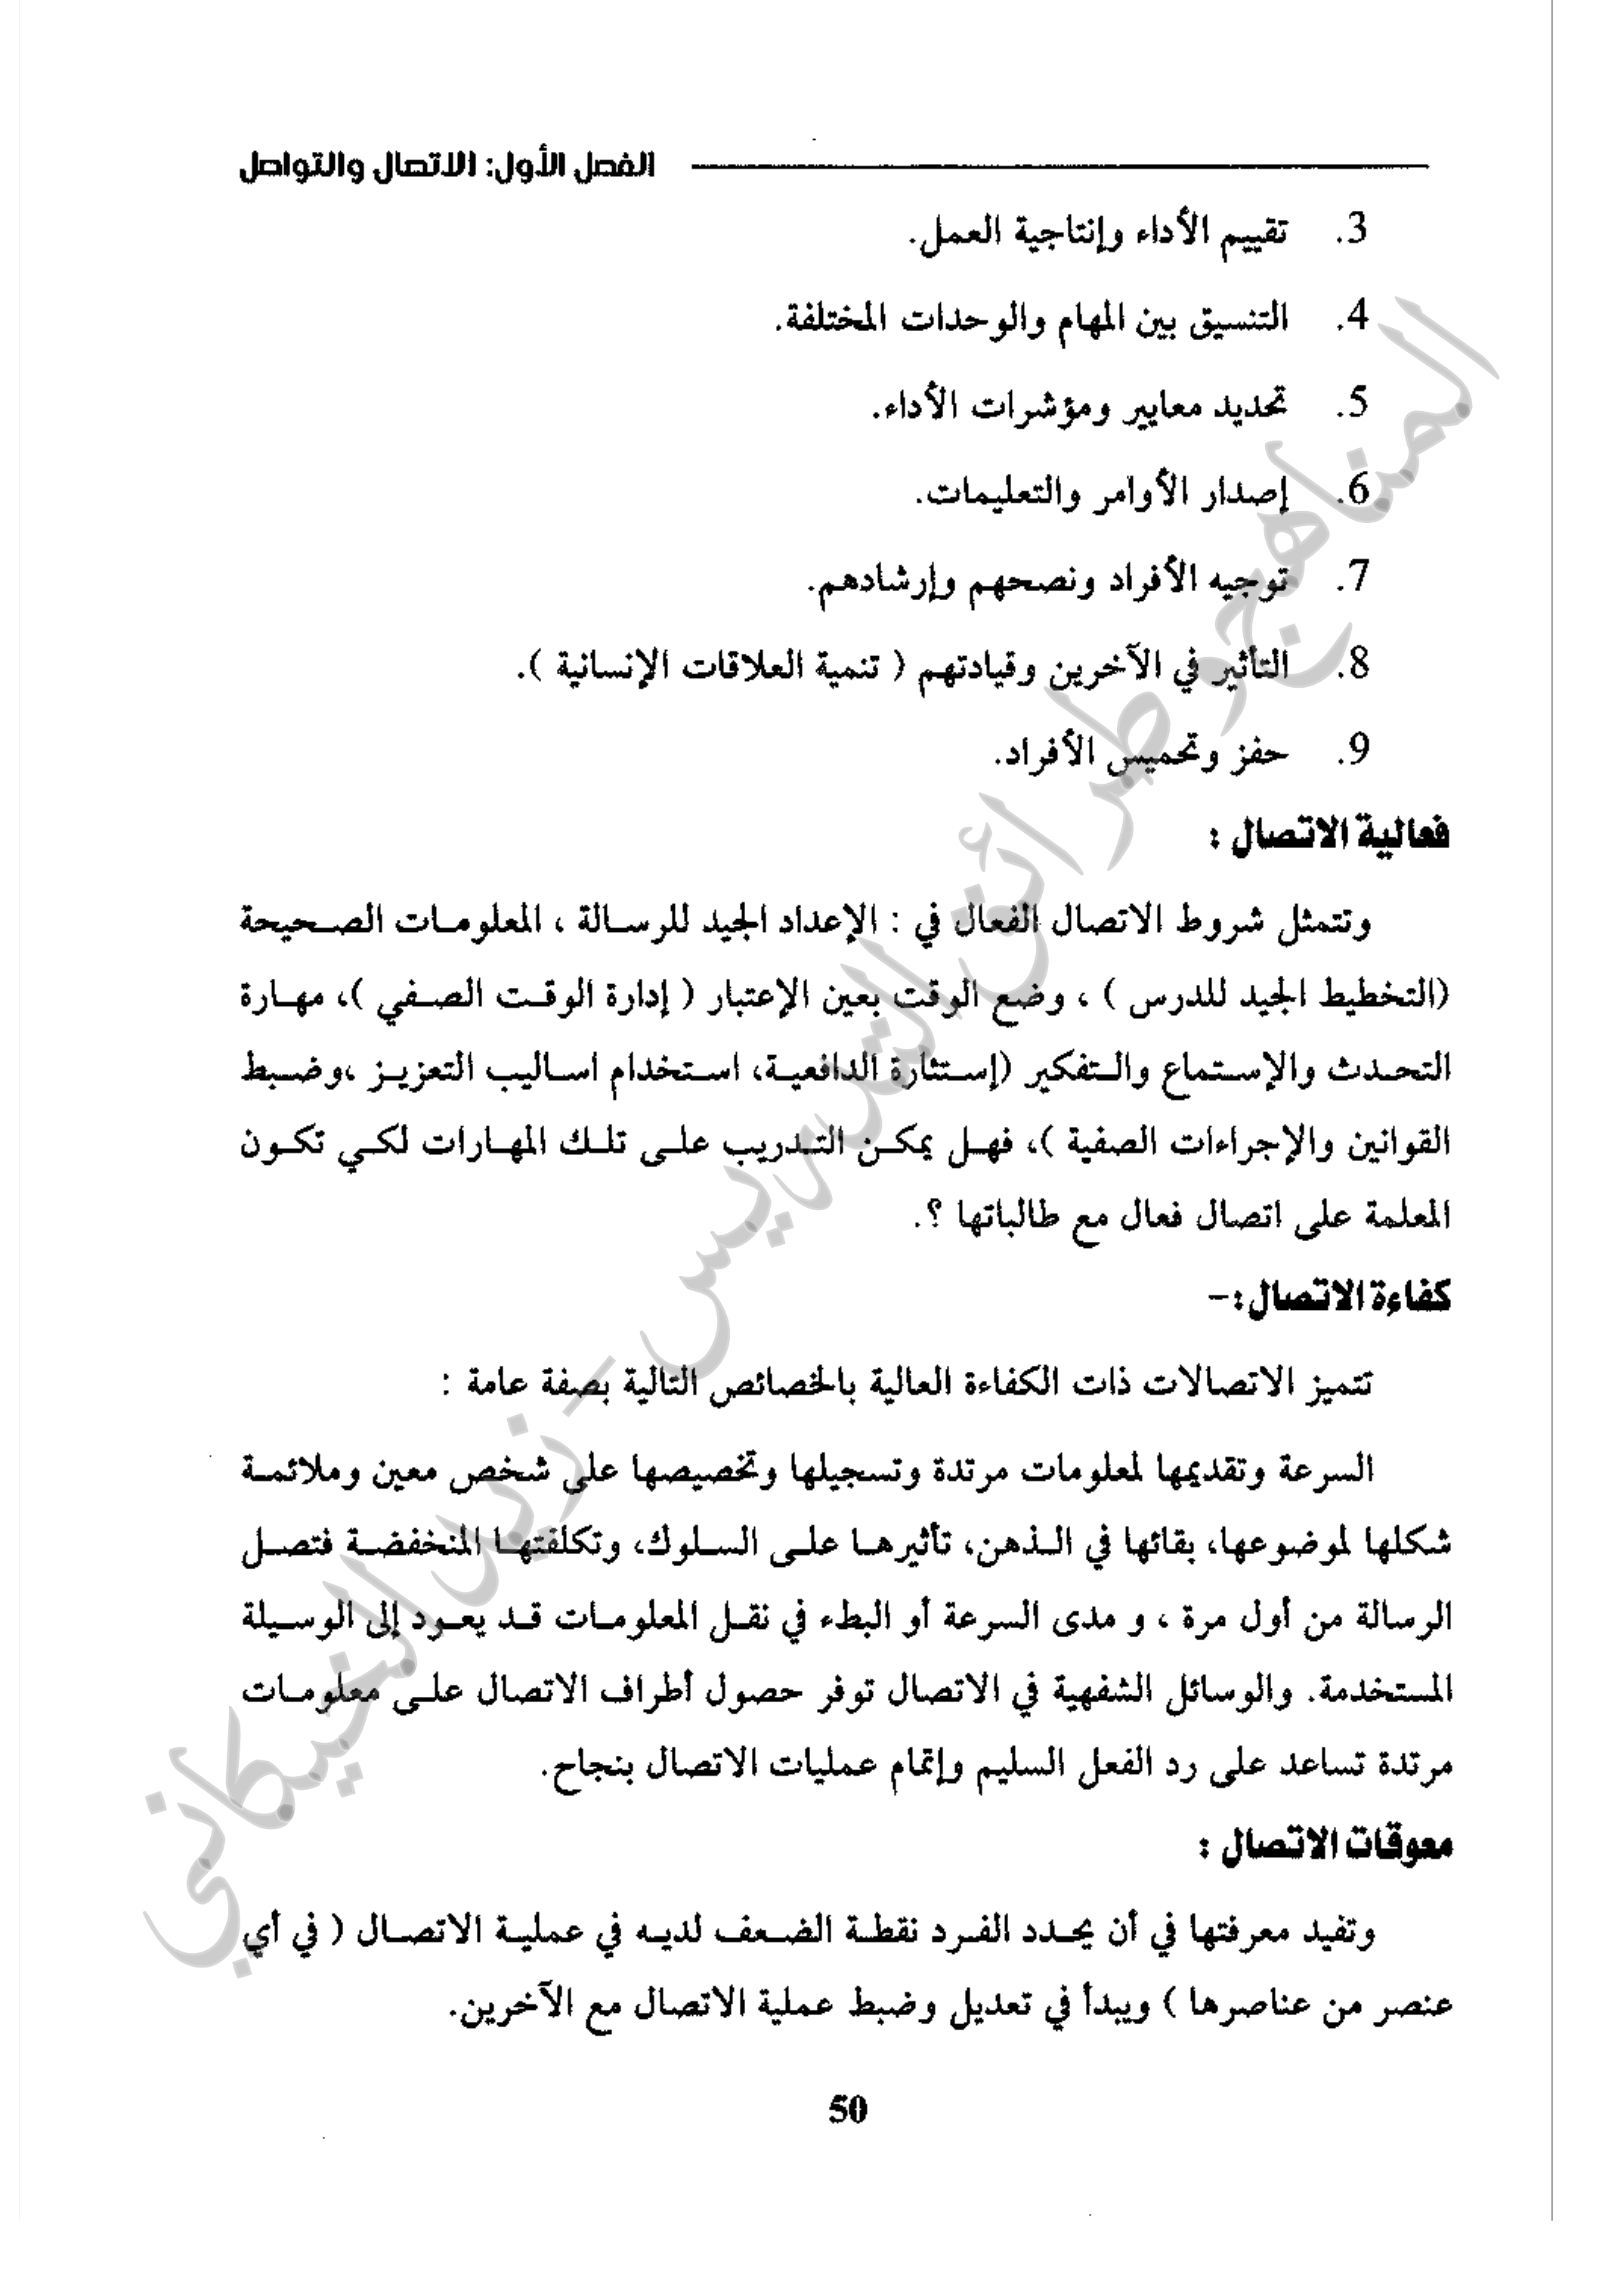 الفصل الأول: الاتصال والتواصل
3. تقييم الأداء وإنتاجية العمل.
4. التنسيق بين المهام والوحدات المختلفة.
5. تحديد معايير ومؤشرات الأداء.
6. إصدار الأوامر والتعليمات.
7. توجيه الأفراد ونصحهم وإرشادهم.
8. التأثير في الآخرين وقيادتهم ( تنمية العلاقات الإنسانية ).
9. حفز وتحميس الأفراد.
فعالية الاتصال :
وتتمثل شروط الاتصال الفعال في : الإعداد الجيد للرسالة ، المعلومات الصحيحة
(التخطيط الجيد للدرس ) ، وضع الوقت بعين الإعتبار ( إدارة الوقت الصفي )، مهارة
التحدث والإستماع والتفكير (إستثارة الدافعية، استخدام اساليب التعزيز ،وضبط
القوانين والإجراءات الصفية )، فهل يمكن التدريب على تلك المهارات لكي تكون
المعلمة على اتصال فعال مع طالباتها ؟.
كفاءة الاتصال:-
تتميز الاتصالات ذات الكفاءة العالية بالخصائص التالية بصفة عامة :
السرعة وتقديمها لمعلومات مرتدة وتسجيلها وتخصيصها على شخص معين وملائمة
شكلها لموضوعها، بقائها في الذهن، تأثيرها على السلوك، وتكلفتها المنخفضة فتصل
الرسالة من أول مرة ، و مدى السرعة أو البطء في نقل المعلومات قد يعود إلى الوسيلة
المستخدمة. والوسائل الشفهية في الاتصال توفر حصول أطراف الاتصال على معلومات
مرتدة تساعد على رد الفعل السليم وإتمام عمليات الاتصال بنجاح.
معوقات الاتصال :
وتفيد معرفتها في أن يحدد الفرد نقطة الضعف لديه في عملية الاتصال ( في أي
عنصر من عناصرها ) ويبدأ في تعديل وضبط عملية الاتصال مع الآخرين.
50
المناهج وطرائق التدريس - زيد الخيكاني